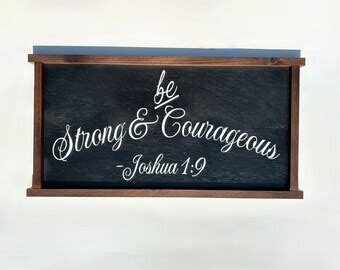 be
Strong & Courageous
-Joshua 1:9